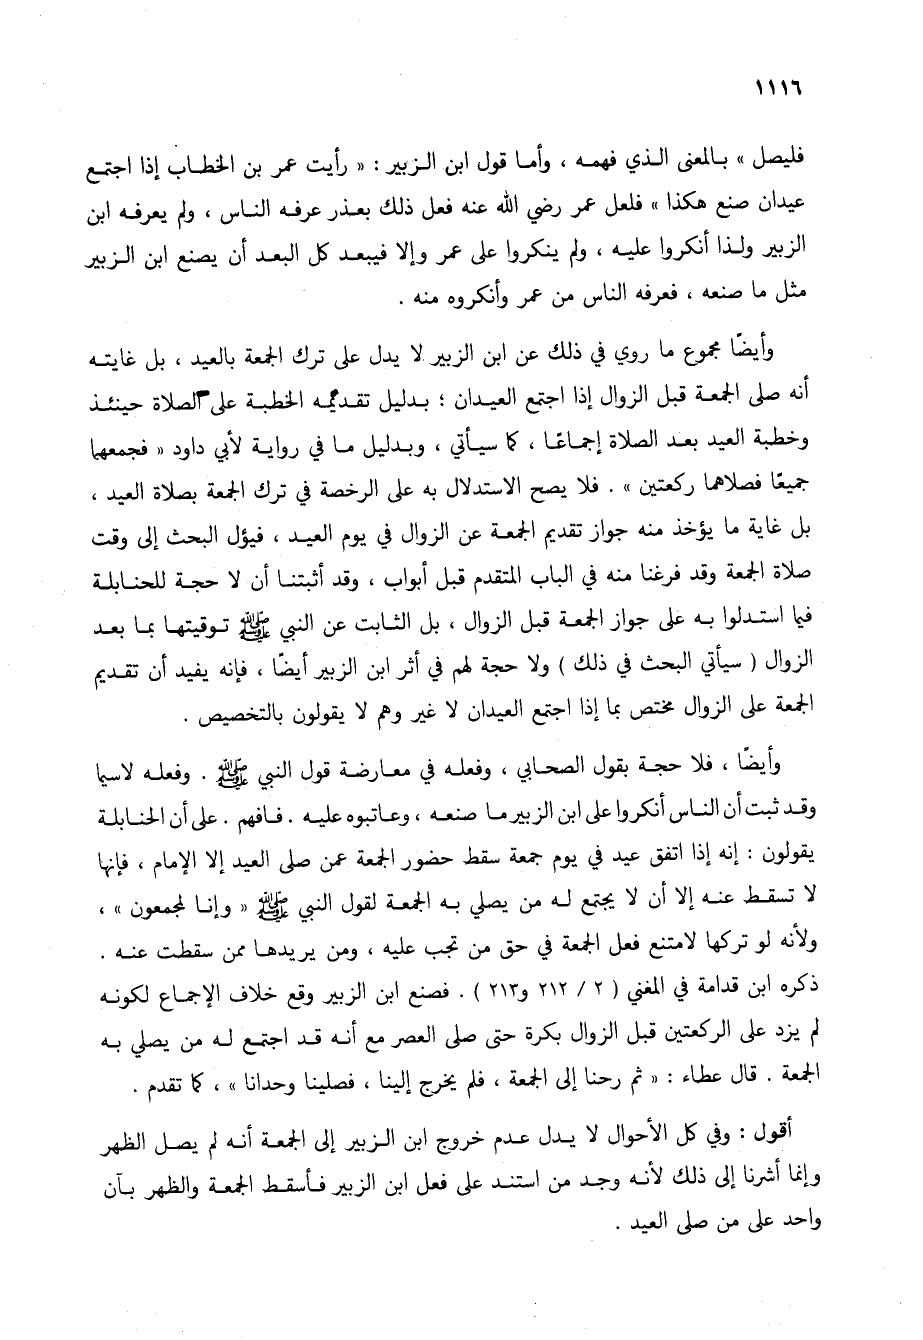 ١١١٦
فليصل » بالمعنى الذي فهمه ، وأما قول ابن الزبير : « رأيت عمر بن الخطاب إذا اجتمع
عيدان صنع هكذا » فلعل عمر رضي الله عنه فعل ذلك بعذر عرفه الناس ، ولم يعرفه ابن
الزبير ولذا أنكروا عليه ، ولم ينكروا على عمر وإلا فيبعد كل البعد أن يصنع ابن الزبير
مثل ما صنعه ، فعرفه الناس من عمر وأنكروه منه .
وأيضًا مجموع ما روي في ذلك عن ابن الزبير لا يدل على ترك الجمعة بالعيد ، بل غايته
أنه صلى الجمعة قبل الزوال إذا اجتمع العيدان ؛ بدليل تقديمه الخطبة على الصلاة حينئذ
وخطبة العيد بعد الصلاة إجماعًا ، كما سيأتي ، وبدليل ما في رواية لأبي داود « فجمعهما
جميعًا فصلاهما ركعتين » . فلا يصح الاستدلال به على الرخصة في ترك الجمعة بصلاة العيد ،
بل غاية ما يؤخذ منه جواز تقديم الجمعة عن الزوال في يوم العيد ، فيؤل البحث إلى وقت
صلاة الجمعة وقد فرغنا منه في الباب المتقدم قبل أبواب ، وقد أثبتنا أن لا حجة للحنابلة
فيما استدلوا به على جواز الجمعة قبل الزوال ، بل الثابت عن النبي ﷺ توقيتها بما بعد
الزوال ( سيأتي البحث في ذلك ) ولا حجة لهم في أثر ابن الزبير أيضًا ، فإنه يفيد أن تقديم
الجمعة على الزوال مختص بما إذا اجتمع العيدان لا غير وهم لا يقولون بالتخصيص .
وأيضًا ، فلا حجة بقول الصحابي ، وفعله في معارضة قول النبي ﷺ . وفعله لاسيما
وقد ثبت أن الناس أنكروا على ابن الزبير ما صنعه ، وعاتبوه عليه . فافهم . على أن الحنابلة
يقولون : إنه إذا اتفق عيد في يوم جمعة سقط حضور الجمعة عمن صلى العيد إلا الإمام ، فإنها
لا تسقط عنه إلا أن لا يجتمع له من يصلي به الجمعة لقول النبي ﷺ « وإنا لمجمعون » ،
ولأنه لو تركها لامتنع فعل الجمعة في حق من تجب عليه ، ومن يريدها ممن سقطت عنه .
ذكره ابن قدامة في المغني ( ٢ / ٢١٢ و٢١٣ ) . فصنع ابن الزبير وقع خلاف الإجماع لكونه
لم يزد على الركعتين قبل الزوال بكرة حتى صلى العصر مع أنه قد اجتمع له من يصلي به
الجمعة . قال عطاء : « ثم رحنا إلى الجمعة ، فلم يخرج إلينا ، فصلينا وحدانا » ، كما تقدم .
أقول : وفي كل الأحوال لا يدل عدم خروج ابن الزبير إلى الجمعة أنه لم يصل الظهر
وإنما أشرنا إلى ذلك لأنه وجد من استند على فعل ابن الزبير فأسقط الجمعة والظهر بآن
واحد على من صلى العيد .